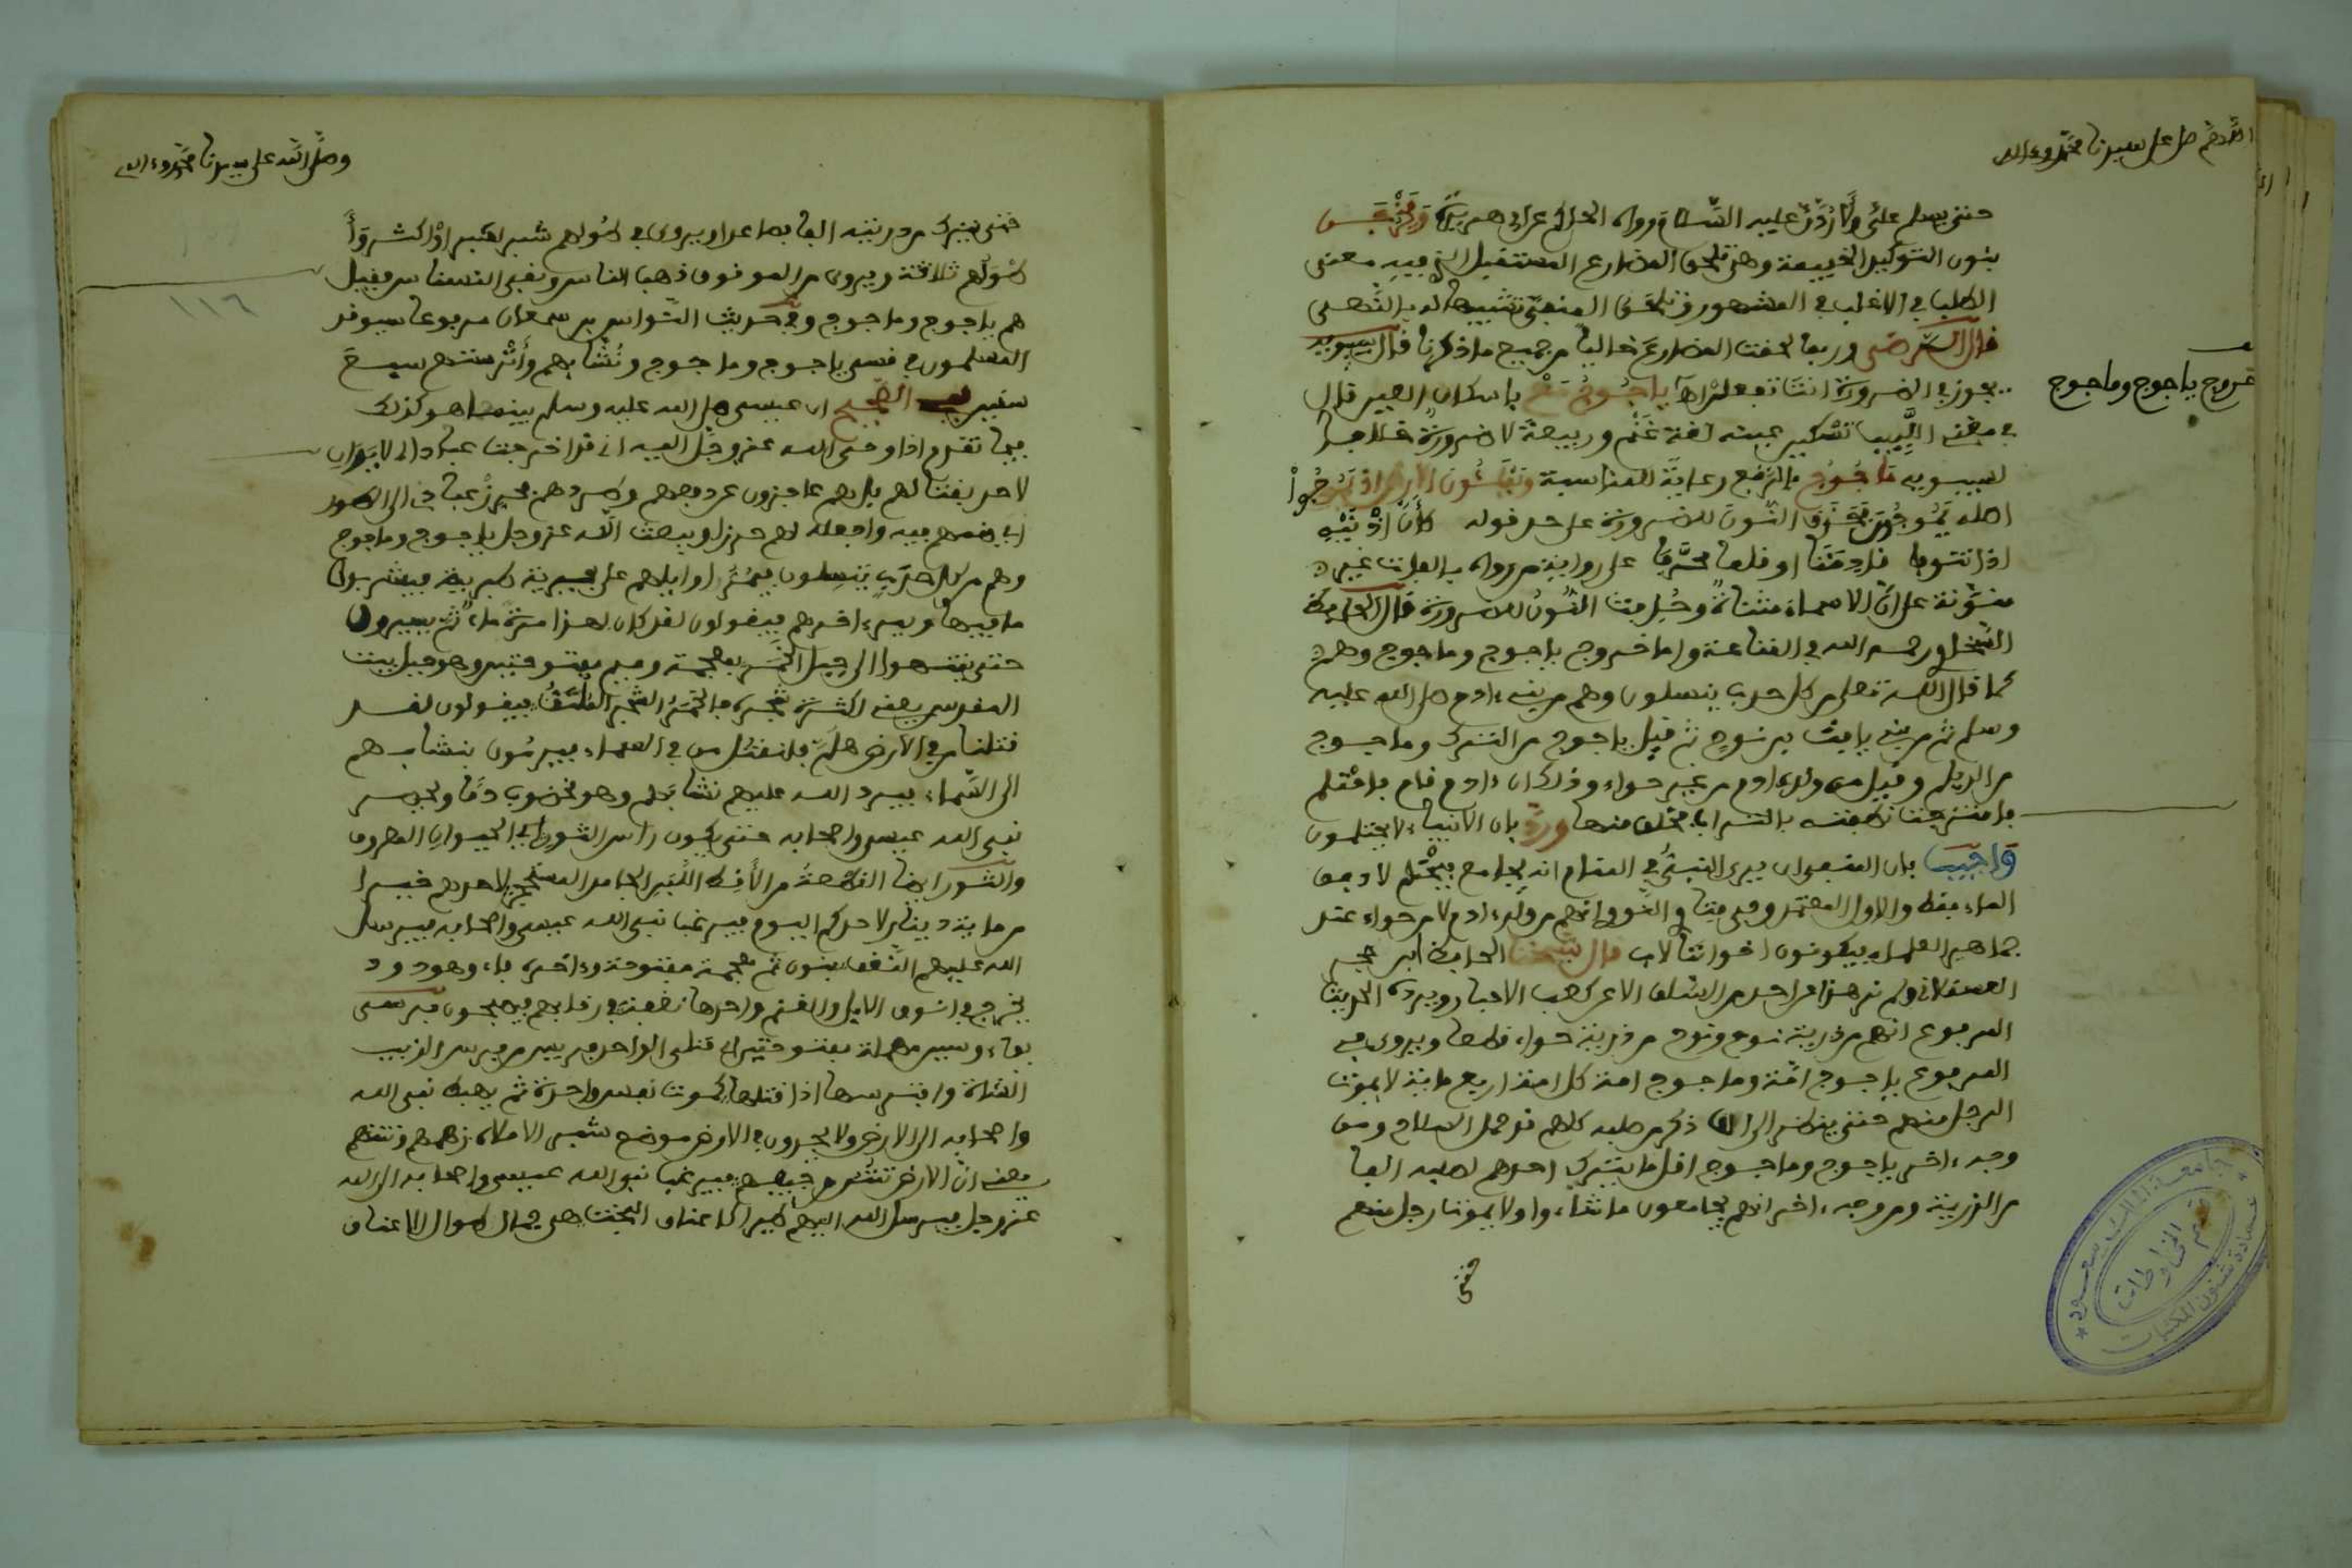 اللهم صل على سيدنا محمد وءاله
حتى يسلم علي ولأردن عليه السلام رواه الحاكم عن ابي هريرة
بنون التوكيد الخفيفة وهي تلحق المضارع المستقبل الذي فيه معنى
الطلب في الاغلب في المشهور وتلحق المنفي تشبيها له بالنهي
قال الرضي وربما لحقت المضارع خاليا من جميع ما ذكرنا قال سيبويه
يجوز في الضرورة انت تفعلن ياجوج مع باسكان العين قال
في مغني اللبيب تسكين عينه لغة غنم وربيعة لا ضرورة خلافا
لسيبويه ماجوج بالرفع رعاية للمناسبة
اصله يموجون فحذف النون للضرورة على حد قوله
اذا
منونة على ان الاسماء مثناة وحذفت النون للضرورة قال الحافظ
خروج ياجوج وماجوج
السخاوي رحمه الله في القناعة واما خروج ياجوج وماجوج وهم
كما قال الله تعلى من كل حدب ينسلون وهم من بني ءادم صلى الله عليه
وسلم ثم من بني يافث بن نوح ثم قيل ياجوج من الترك وماجوج
من الديلم وقيل من ولد ءادم من غير حواء وذلك ان ءادم نام فاحتلم
فامتزجت نطفته بالتراب فخلق منها ورد بان الانبياء لا يحتلمون
واجيب بان المنفي ان يرى النبي في المنام انه يجامع فيحتلم لا دفق
الماء فقط والاول المعتمد وفي فتاوي النووي انهم من ولد ءادم لا من حواء عند
جماهير العلماء فيكونون اخواننا لاب قال شيخنا الحافظ ابن حجر
العسقلاني ولم نر هذا عن احد من السلف الا عن كعب الاحبار ويرده الحديث
المرفوع انهم من ذرية نوح ونوح من ذرية حواء قطعا ويروى في
المرفوع ياجوج امة وماجوج امة كل امة اربع مائة لا يموت
الرجل منهم حتى ينظر الى الف ذكر من صلبه كلهم قد حمل السلاح ومن
وجه ءاخر ياجوج وماجوج اقل ما يترك احدهم لصلبه الفا
من الذرية ومن وجه ءاخر انهم يجامعون ما شاءوا ولا يموت رجل منهم
حتى
وصلى الله على سيدنا محمد وءاله
حتى يترك من ذريته الفا فصاعدا ويروى في طولهم شبر او شبران واكثر
طولهم ثلاثة ويروى من الموقوف ذهب الناس وبقي النسناس فقيل
١١٦
هم ياجوج وماجوج وفي حديث النواس بن سمعان مرفوعا سيوقد
المسلمون من قسي ياجوج وماجوج ونشابهم وأترستهم سبع
سنين الصحيح ان عيسى صلى الله عليه وسلم بينما هو كذلك
فيما تقدم اذ اوحى الله عز وجل اليه اني قد اخرجت عبادا لي لا يدان
لاحد بقتالهم عاجزون عن دفعهم فحرز عبادي الى الطور
اي ضمهم فيه واجعله لهم حرزا ويبعث الله عز وجل ياجوج وماجوج
وهم من كل حدب ينسلون فيمر اوايلهم على بحيرة طبرية فيشربون
ما فيها ويمر ءاخرهم فيقولون لقد كان بهذا مرة ماء ثم يسيرون
حتى ينتهوا الى جبل الخمر بمعجمة وميم مفتوحتين وهو جبل بيت
المقدس يعني لكثرة شجره فالخمر الشجر الملتف فيقولون لقد
قتلنا من في الارض هلم فلنقتل من في السماء فيرمون بنشابهم
الى السماء فيرد الله عليهم نشابهم وهو مخضوب دما ويحصر
نبي الله عيسى واصحابه حتى يكون راس الثور اي الحيوان المعروف
والثور ايضا القطعة من الأقط اللبن الجامد المستحجر لاحدهم خيرا
من ماية دينار لاحدكم اليوم فيرغب نبي الله عيسى واصحابه فيرسل
الله عليهم النغف بنون ثم معجمة مفتوحة وءاخره فاء وهو دود
يخرج في انوف الابل والغنم واحدها نغفة في رقابهم فيصبحون فرسى
بفاء وسين مهملة مفتوحتين اي قتلى الواحد فريس من فرس الذيب
الشاة وافترسها اذا قتلها كموت نفس واحدة ثم يهبط نبي الله
واصحابه الى الارض ولا يجدون في الارض موضع شبر الا ملأه زهمهم ونتنهم
يعني ان الارض تنتن من جيفهم فيرغب نبي الله عيسى واصحابه الى الله
عز وجل فيرسل الله اليهم طيرا كاعناق البخت هي جمال طوال الاعناق
جامعة الملك سعود
قسم المخطوطات
عمادة شئون المكتبات